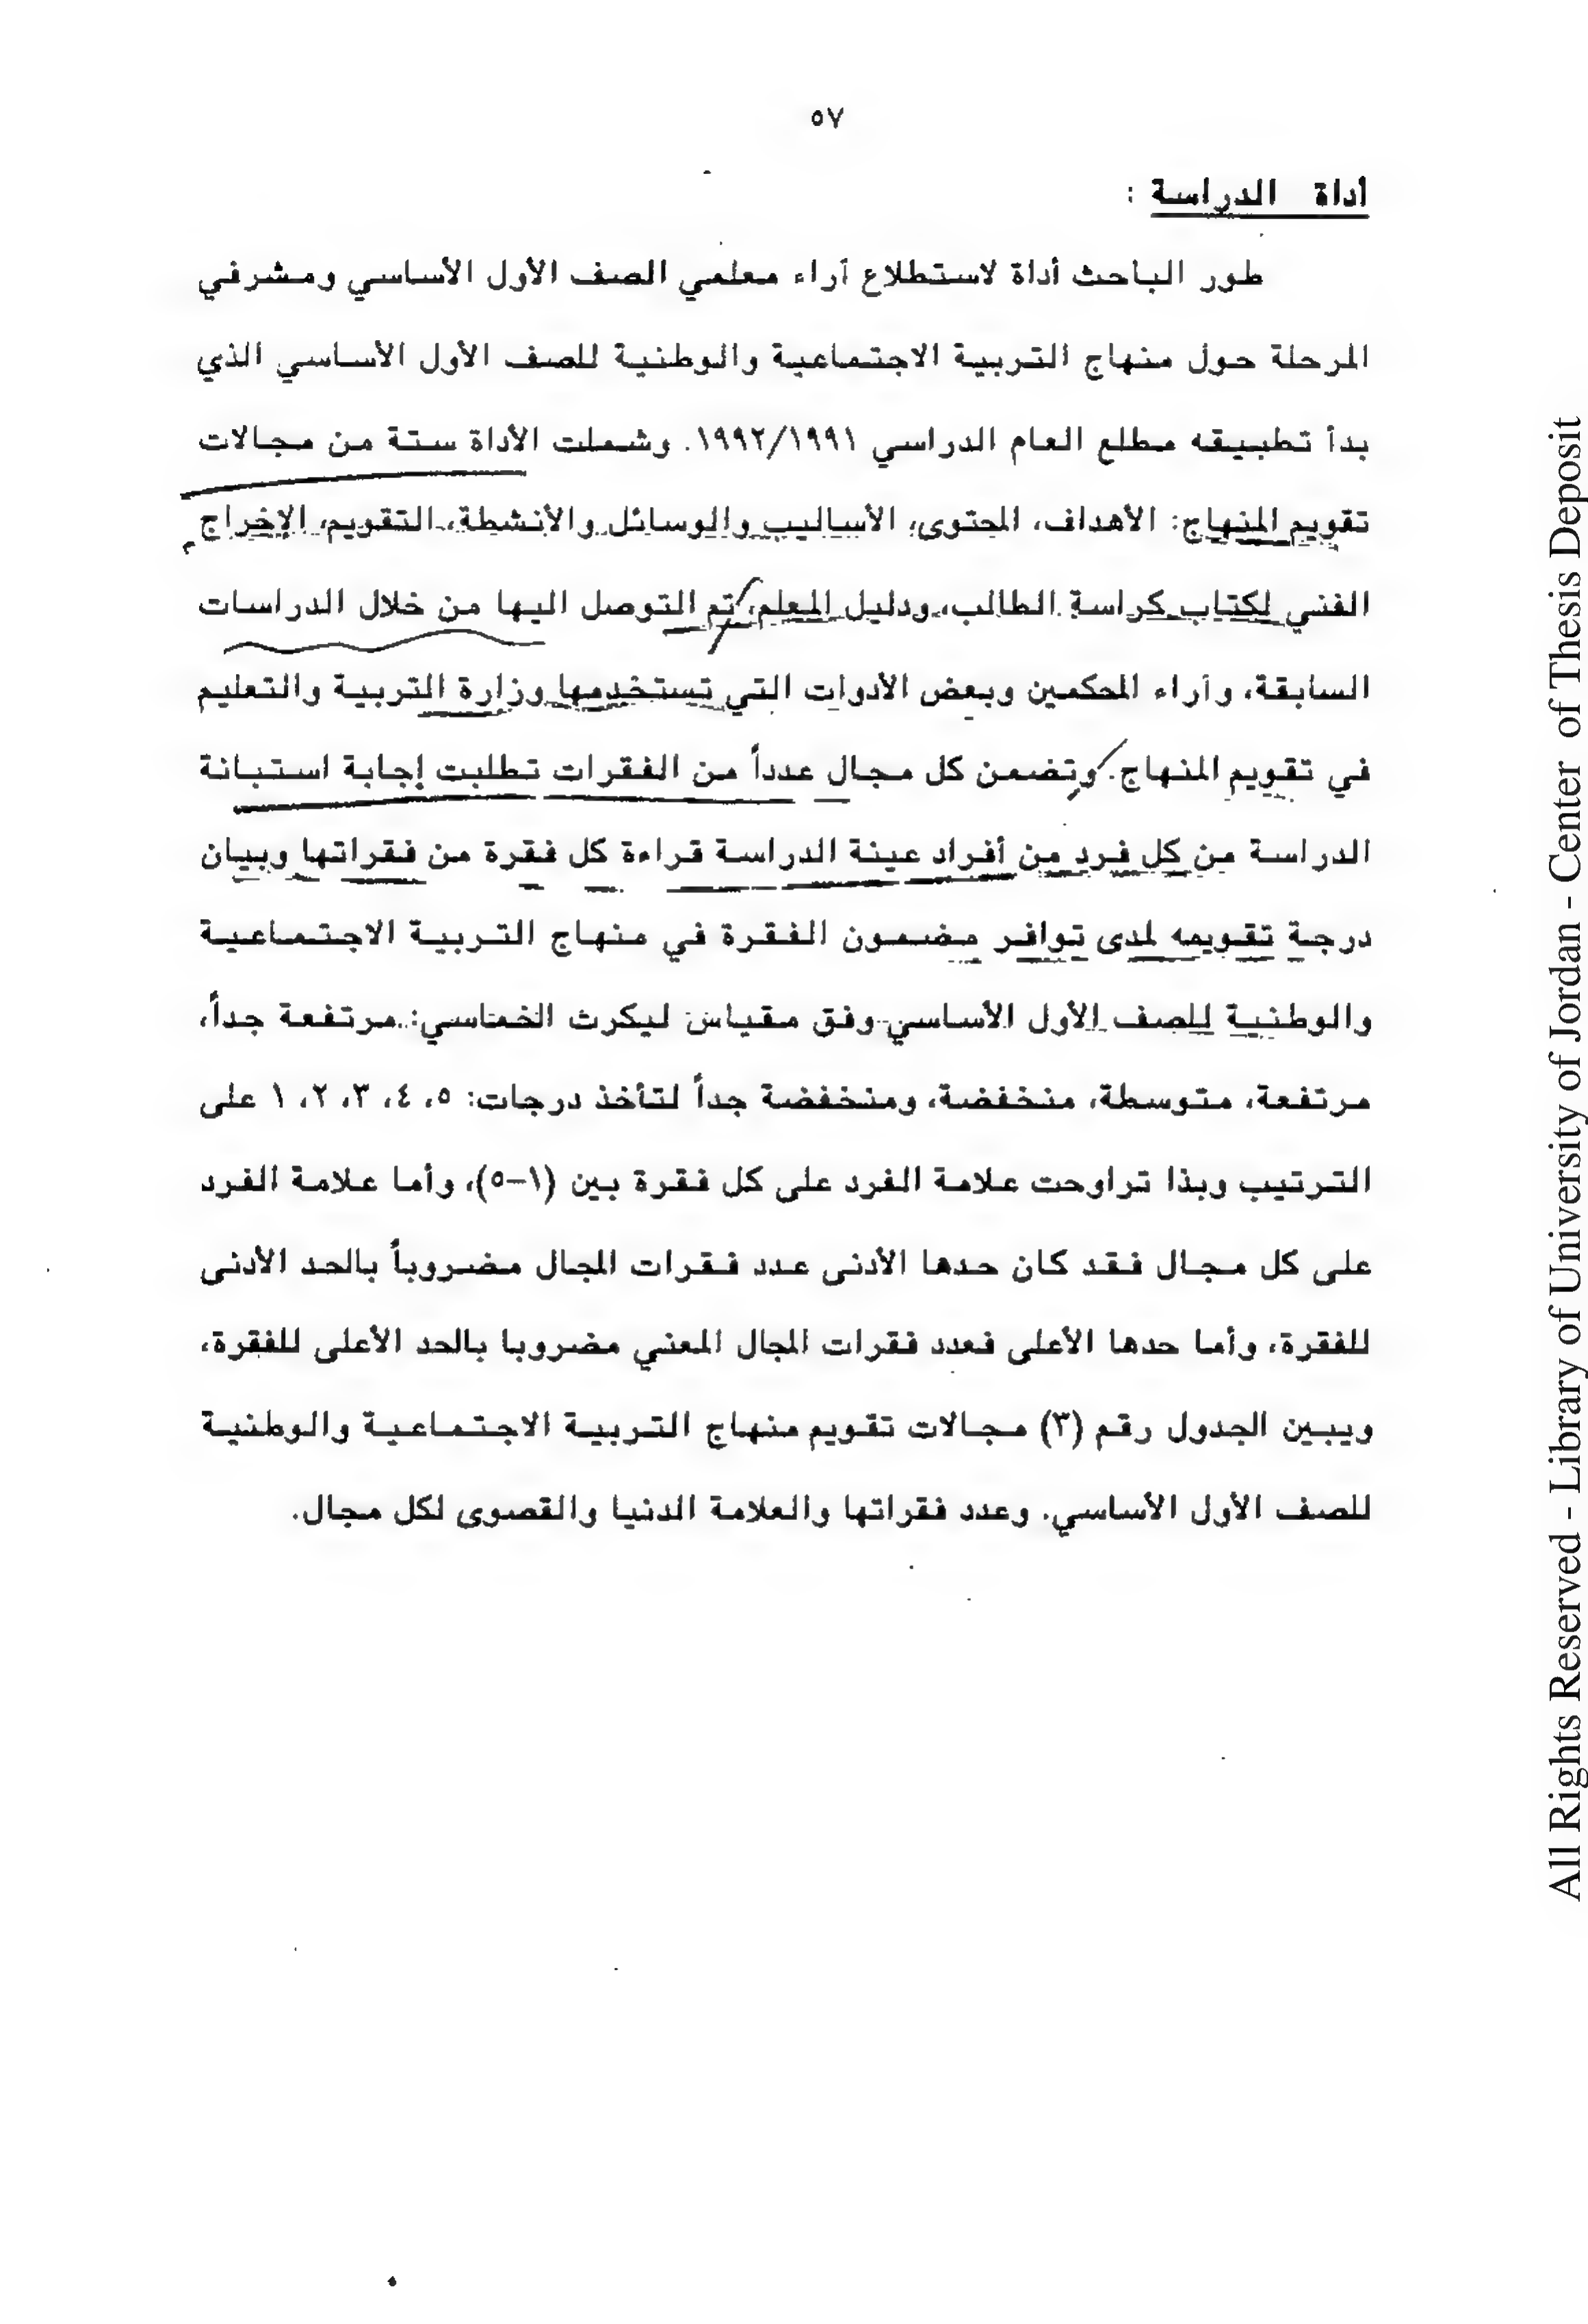 ٥٧
أداة الدراسة :
طور الباحث أداة لاستطلاع آراء معلمي الصف الأول الأساسي ومشرفي
المرحلة حول منهاج التربية الاجتماعية والوطنية للصف الأول الأساسي الذي
بدأ تطبيقه مطلع العام الدراسي ١٩٩٢/١٩٩١. وشملت الأداة ستة من مجالات
تقويم المنهاج: الأهداف، المحتوى، الأساليب والوسائل والأنشطة، التقويم، الإخراج
الفني لكتاب كراسة الطالب، ودليل المعلم، تم التوصل اليها من خلال الدراسات
السابقة، وآراء المحكمين وبعض الأدوات التي تستخدمها وزارة التربية والتعليم
في تقويم المنهاج. وتضمن كل مجال عدداً من الفقرات تطلبت إجابة استبانة
الدراسة من كل فرد من أفراد عينة الدراسة قراءة كل فقرة من فقراتها وبيان
درجة تقويمه لمدى توافر مضمون الفقرة في منهاج التربية الاجتماعية
والوطنية للصف الأول الأساسي وفق مقياس ليكرث الخماسي: مرتفعة جداً،
مرتفعة، متوسطة، منخفضة، ومنخفضة جداً لتأخذ درجات: ٥، ٤، ٣، ٢، ١ على
الترتيب وبذا تراوحت علامة الفرد على كل فقرة بين (١-٥)، وأما علامة الفرد
على كل مجال فقد كان حدها الأدنى عدد فقرات المجال مضروباً بالحد الأدنى
للفقرة، وأما حدها الأعلى فعدد فقرات المجال المعني مضروبا بالحد الأعلى للفقرة،
ويبين الجدول رقم (٣) مجالات تقويم منهاج التربية الاجتماعية والوطنية
للصف الأول الأساسي. وعدد فقراتها والعلامة الدنيا والقصوى لكل مجال.
All Rights Reserved - Library of University of Jordan - Center of Thesis Deposit